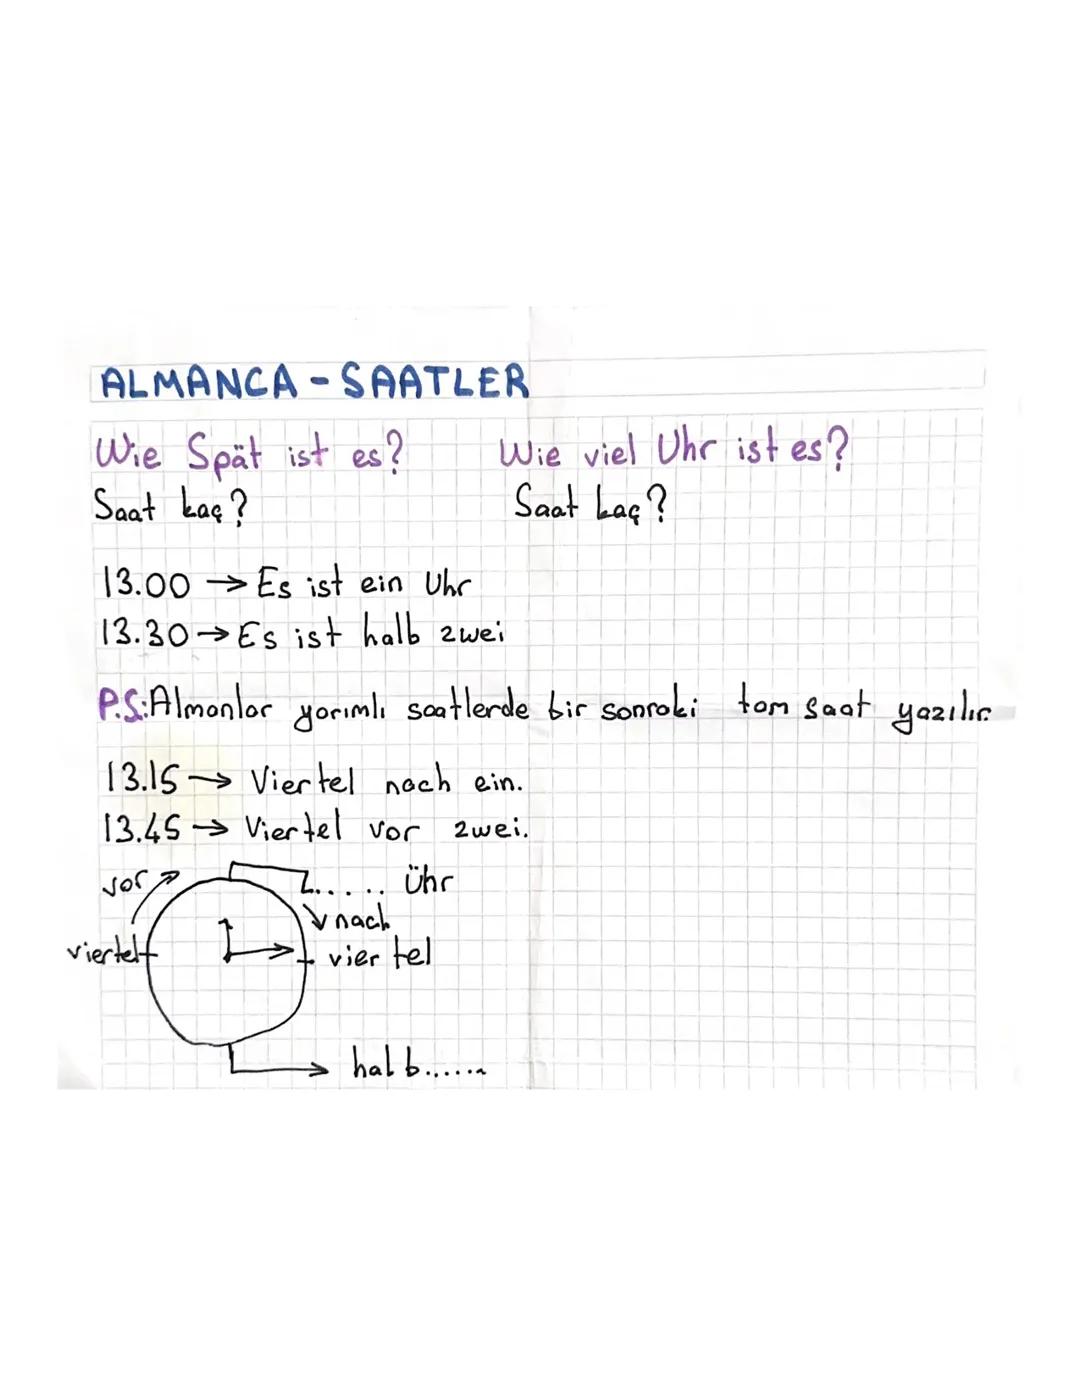 ALMANCA - SAATLER
Wie Spät ist es? Wie viel Uhr ist es?
Saat kaç? Saat kaç?
13.00 → Es ist ein Uhr
13.30 → Es ist halb zwei
P.S: Almanlar yarımlı saatlerde bir sonraki tam saat yazılır.
13.15 → Viertel nach ein.
13.45 → Viertel vor zwei.
vor ..... Ühr
nach
viertel viertel
halb......